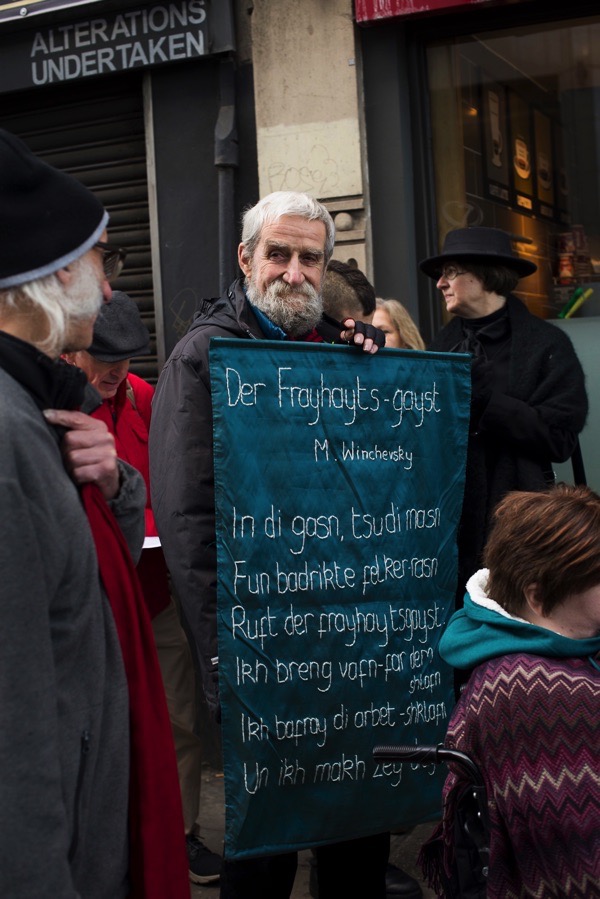 ALTERATIONS
UNDERTAKEN
Der Frayhayts-gayst
M. Winchevsky
In di gasn, tsu di masn
Fun badrikte felker-rasn
Ruft der frayhaytsgayst:
Ikh breng vafn far dem
shlafn
Ikh bafray di arbet-shklafn
Un ikh makh zey